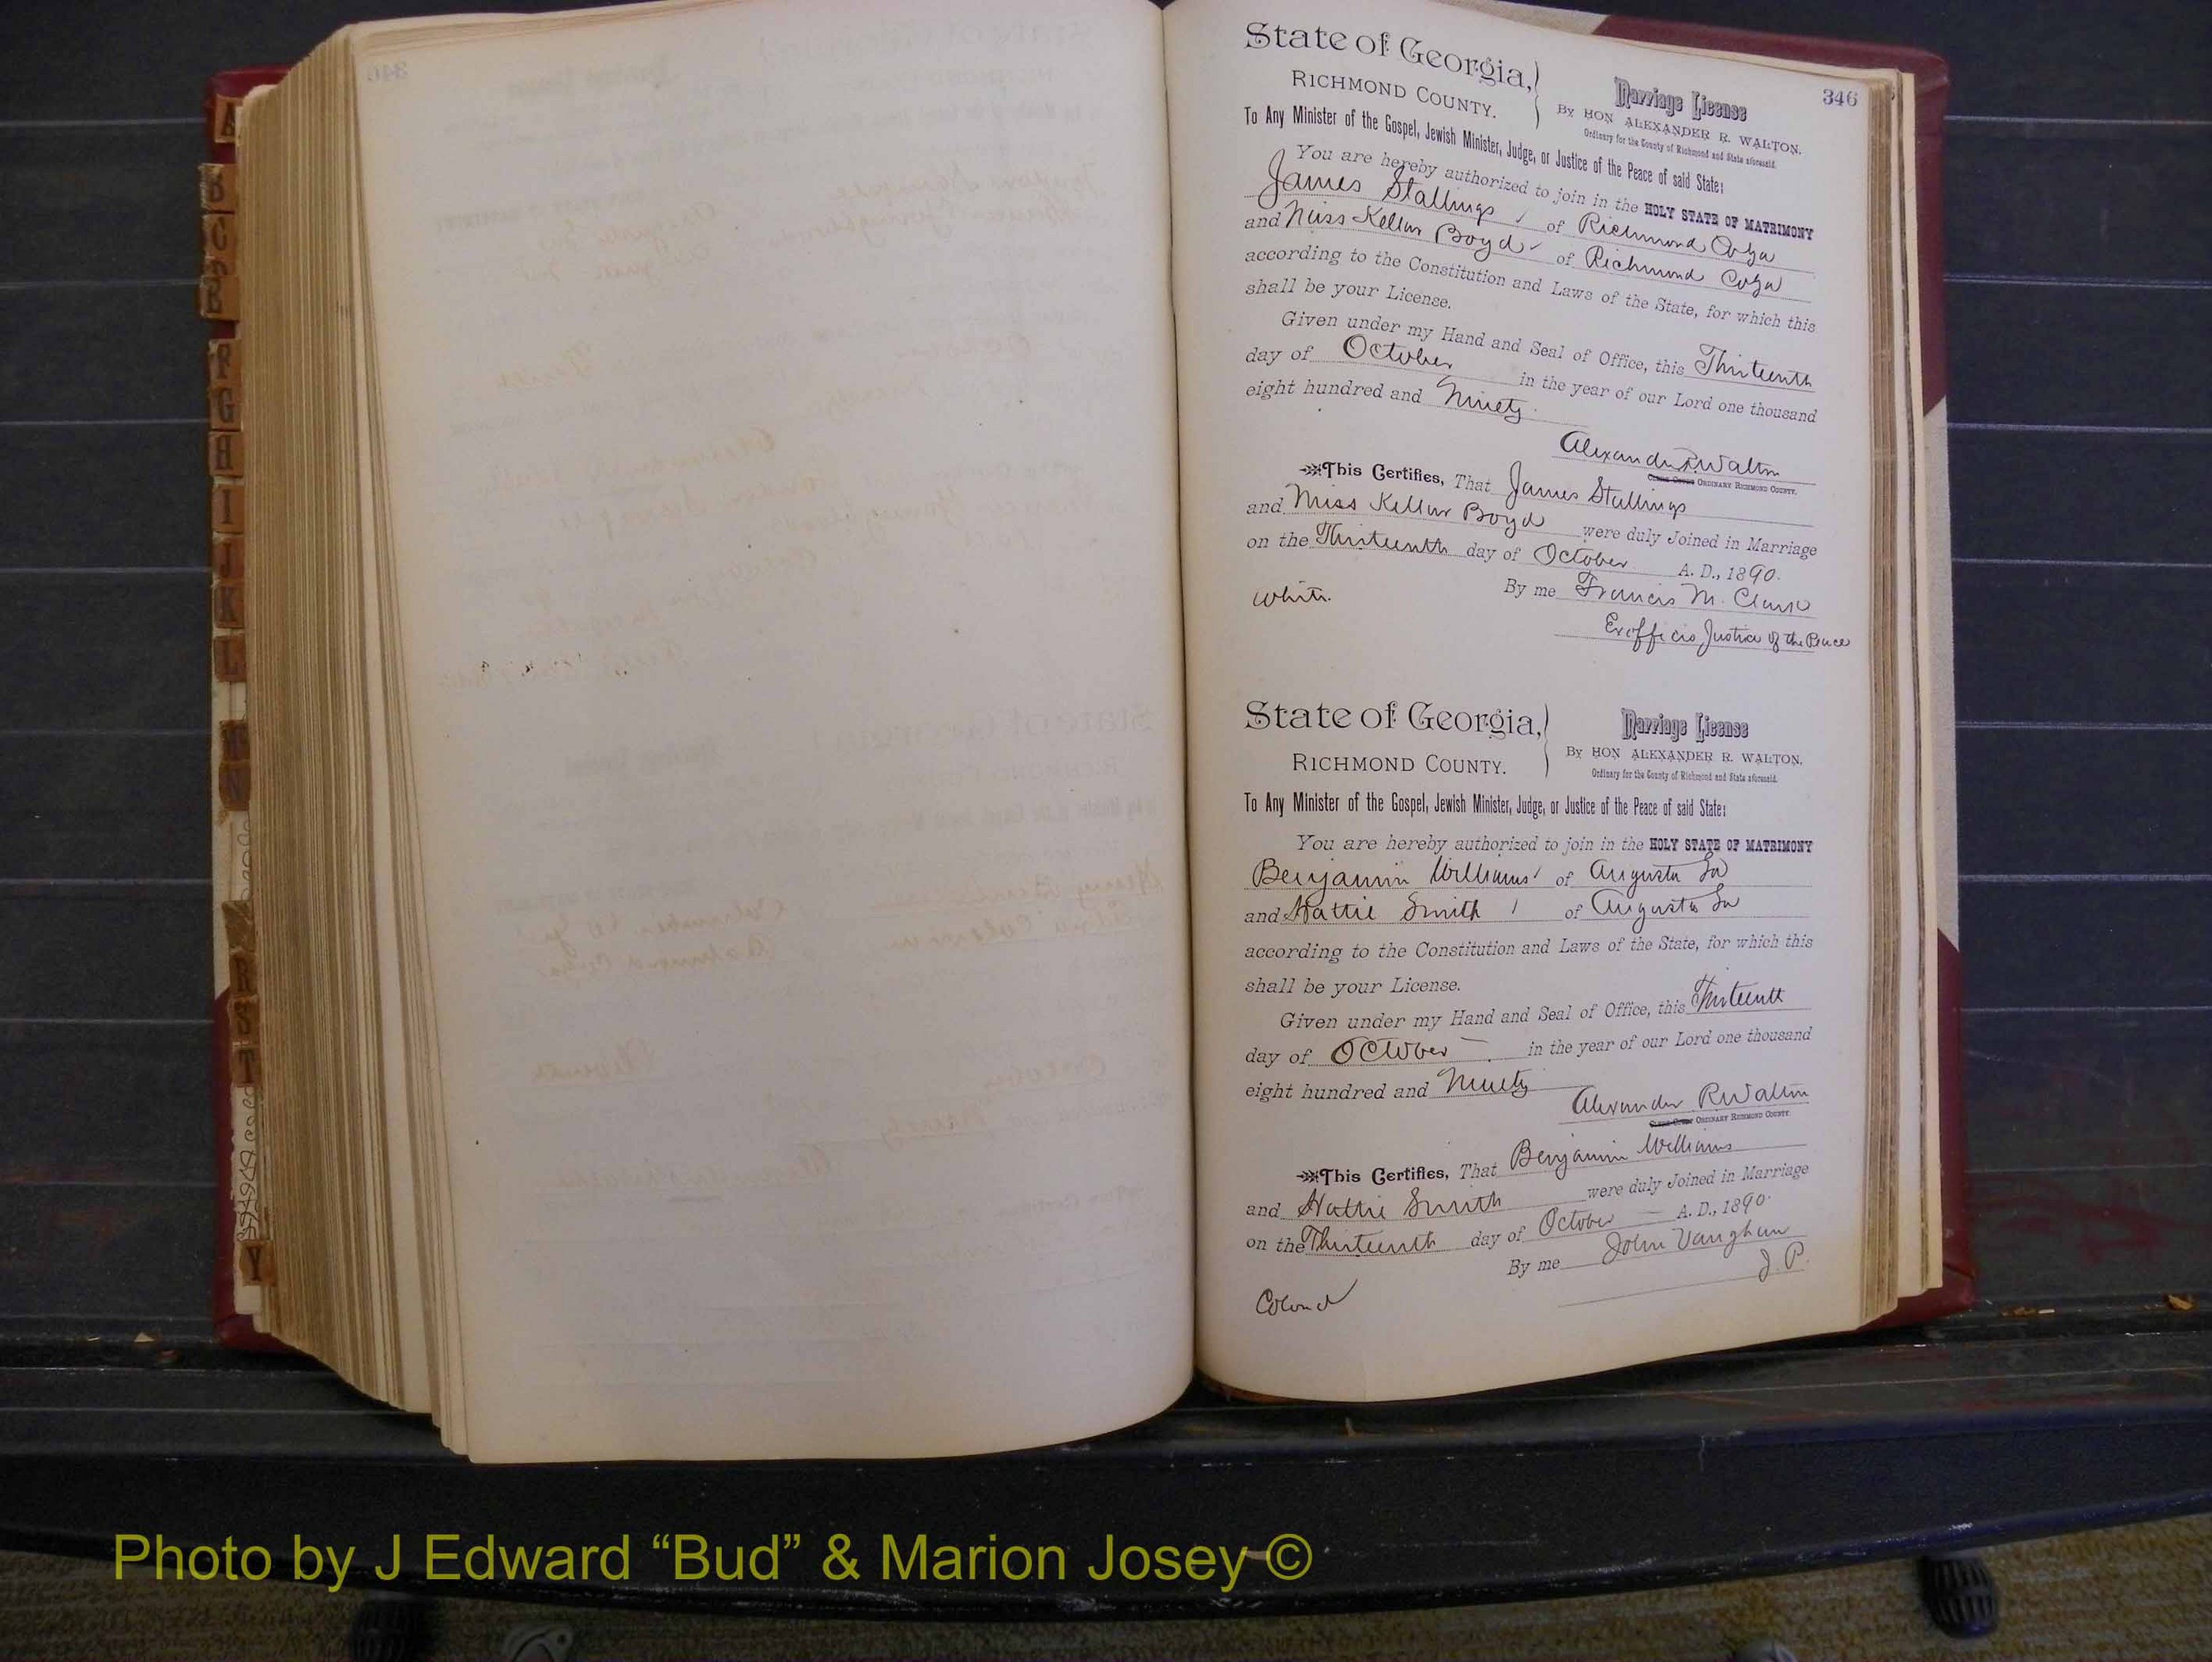 346
State of Georgia,
RICHMOND COUNTY.
Marriage License
By HON ALEXANDER R. WALTON,
Ordinary for the County of Richmond and State aforesaid.
To Any Minister of the Gospel, Jewish Minister, Judge, or Justice of the Peace of said State:
You are hereby authorized to join in the HOLY STATE OF MATRIMONY
James Stallings of Richmond Co Ga
and Miss Kellur Boyd of Richmond Co Ga
according to the Constitution and Laws of the State, for which this
shall be your License.
Given under my Hand and Seal of Office, this Thirteenth
day of October in the year of our Lord one thousand
eight hundred and Ninety.
Alexander R Walton
ORDINARY RICHMOND COUNTY.
This Certifies, That James Stallings
and Miss Kellur Boyd were duly Joined in Marriage
on the Thirteenth day of October A. D., 1890.
White.
By me Francis M. Clark
Exofficio Justice of the Peace
State of Georgia,
RICHMOND COUNTY.
Marriage License
By HON ALEXANDER R. WALTON,
Ordinary for the County of Richmond and State aforesaid.
To Any Minister of the Gospel, Jewish Minister, Judge, or Justice of the Peace of said State:
You are hereby authorized to join in the HOLY STATE OF MATRIMONY
Benjamin Williams of Augusta Ga
and Hattie Smith of Augusta Ga
according to the Constitution and Laws of the State, for which this
shall be your License.
Given under my Hand and Seal of Office, this Thirteenth
day of October in the year of our Lord one thousand
eight hundred and Ninety
Alexander R Walton
ORDINARY RICHMOND COUNTY.
This Certifies, That Benjamin Williams
and Hattie Smith were duly Joined in Marriage
on the Thirteenth day of October A. D., 1890.
By me John Vaughan
J. P.
Colored
A
B
C
F
G
H
I
J
K
L
N
R
S
T
Y
Photo by J Edward “Bud” & Marion Josey ©